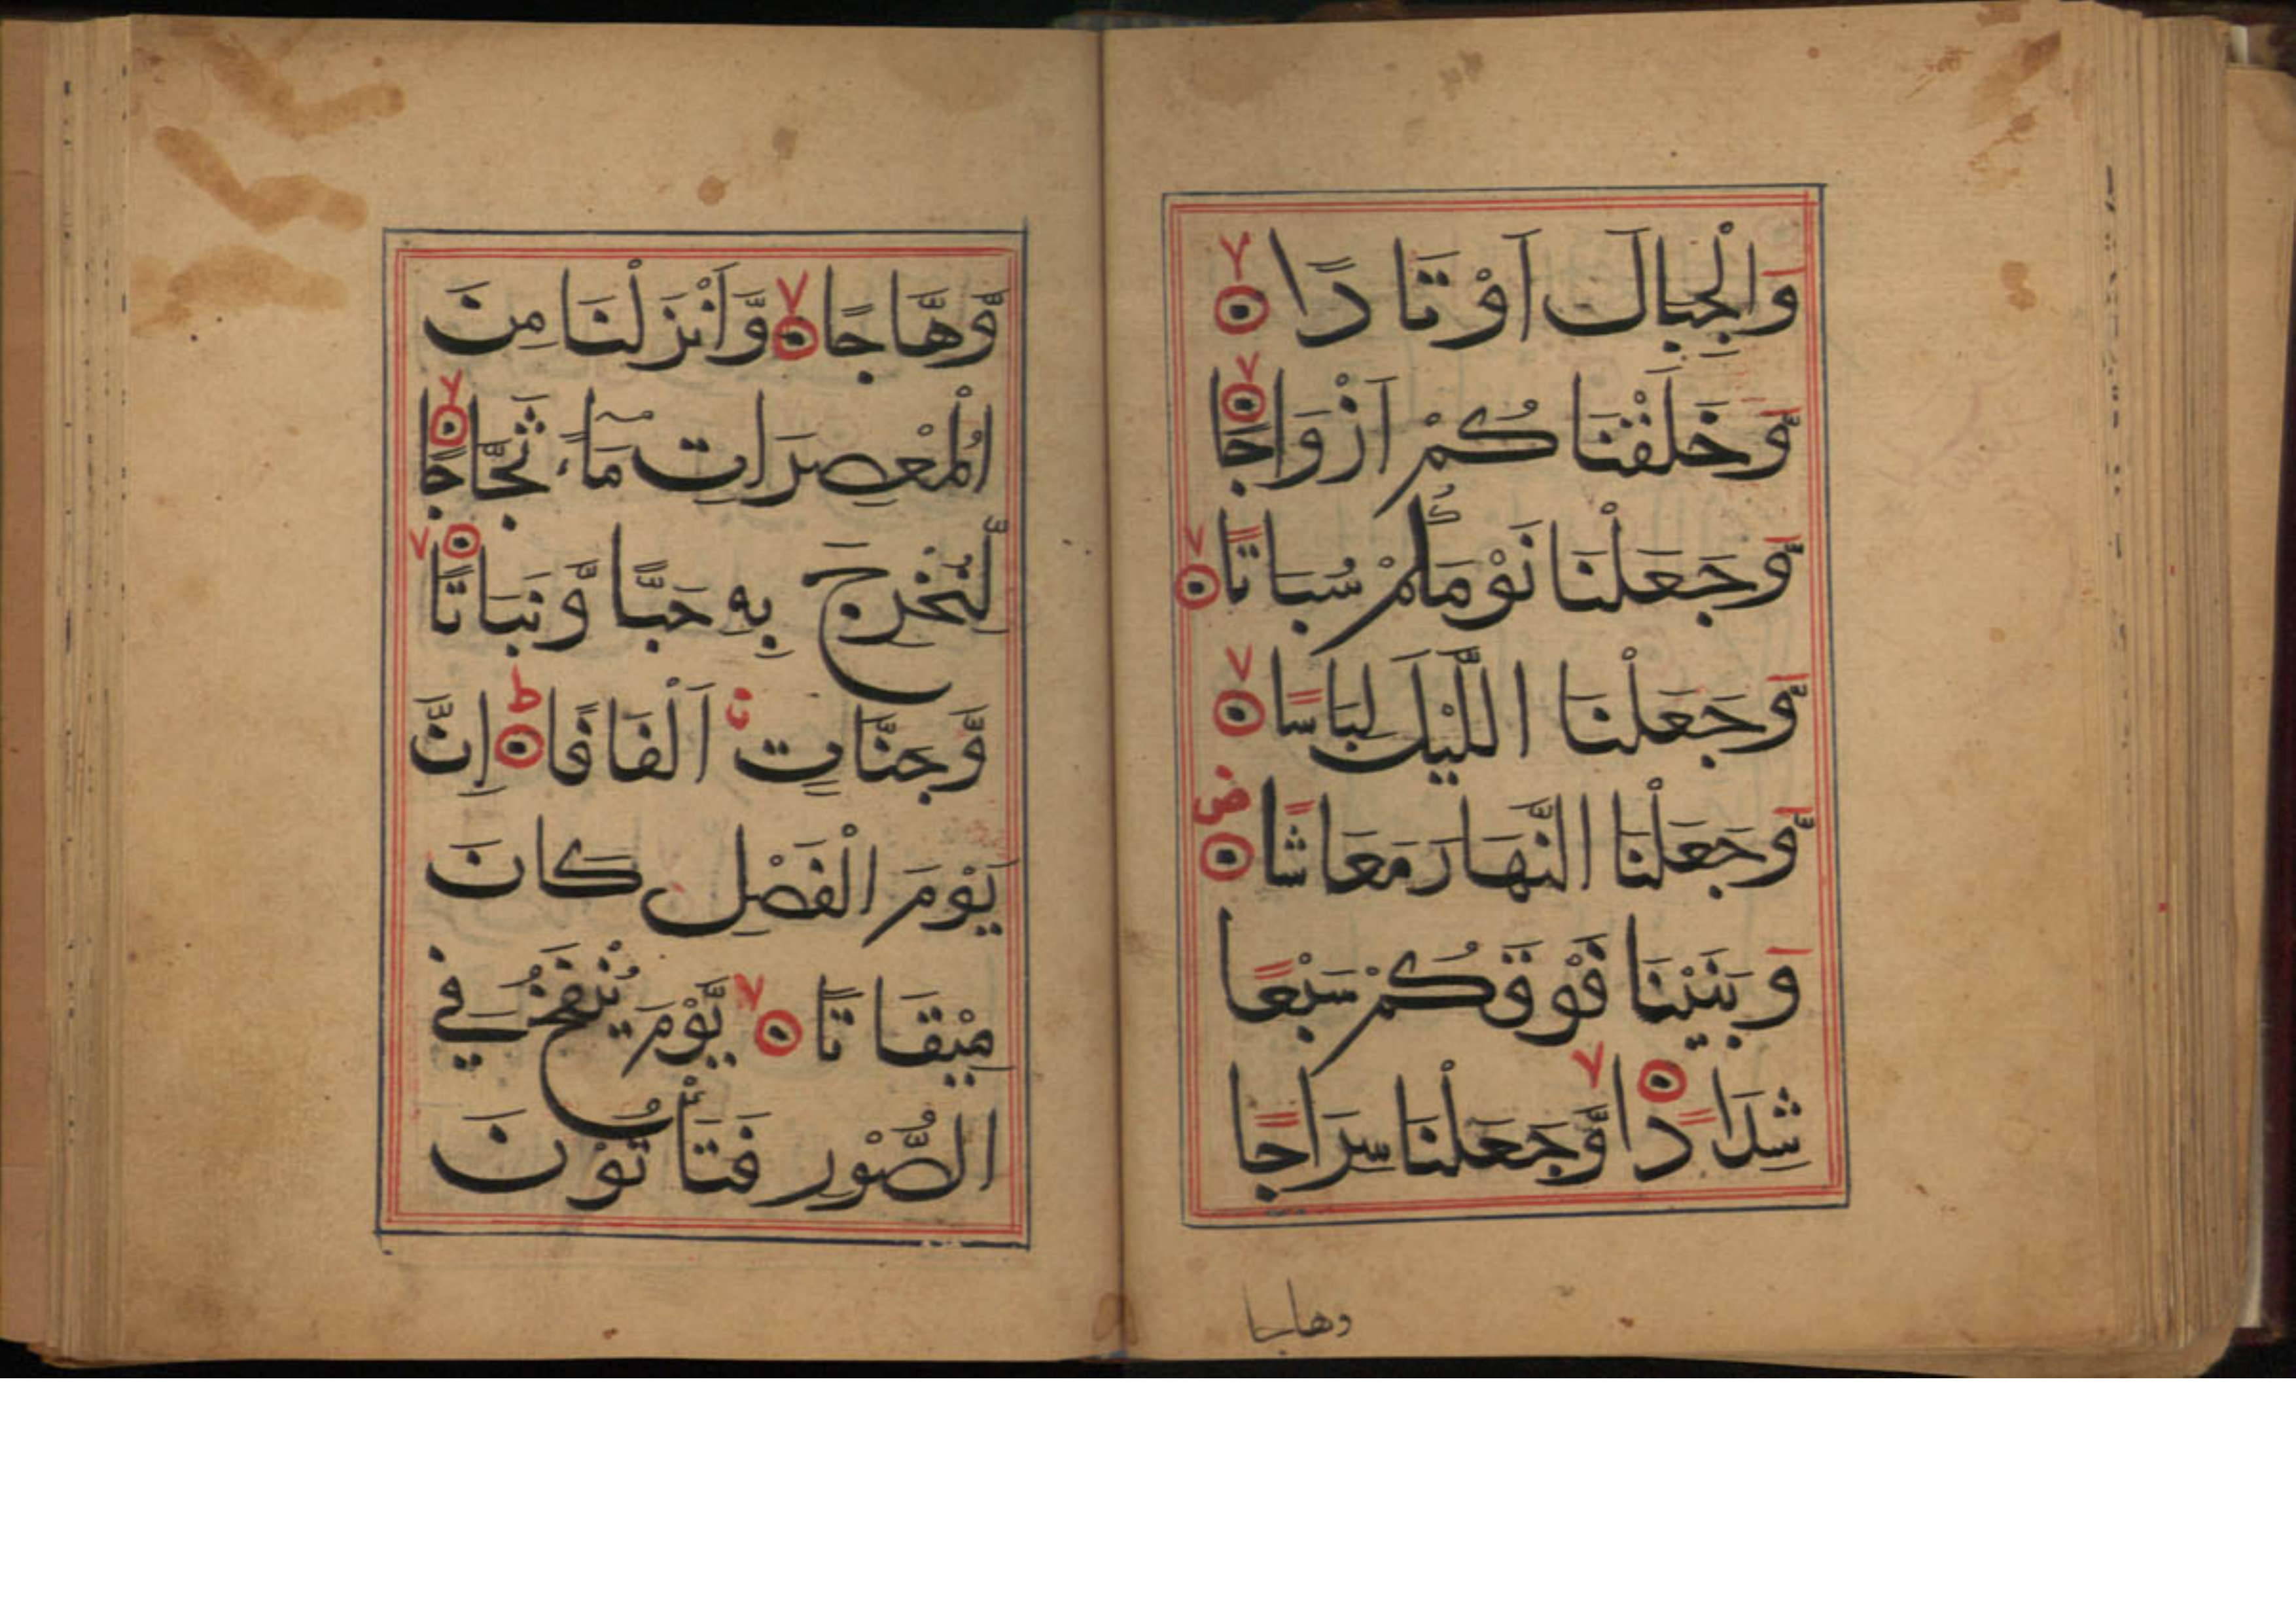 وَالْجِبَالَ اَوْتَادًا ۙ
وَّخَلَقْنَاكُمْ اَزْوَاجًا ۙ
وَّجَعَلْنَا نَوْمَكُمْ سُبَاتًا ۙ
وَّجَعَلْنَا اللَّيْلَ لِبَاسًا ۙ
وَّجَعَلْنَا النَّهَارَ مَعَاشًا ۝ ص
وَبَنَيْنَا فَوْقَكُمْ سَبْعًا
شِدَادًا ۙ وَّجَعَلْنَا سِرَاجًا
وهاجا
وَّهَّاجًا ۙ وَّاَنْزَلْنَا مِنَ
الْمُعْصِرَاتِ مَآءً ثَجَّاجًا ۙ
لِّنُخْرِجَ بِهِ حَبًّا وَّنَبَاتًا ۙ
وَّجَنَّاتٍ اَلْفَافًا ۝ ط اِنَّ
يَوْمَ الْفَصْلِ كَانَ
مِيْقَاتًا ۙ يَّوْمَ يُنْفَخُ فِي
الصُّوْرِ فَتَأْتُوْنَ